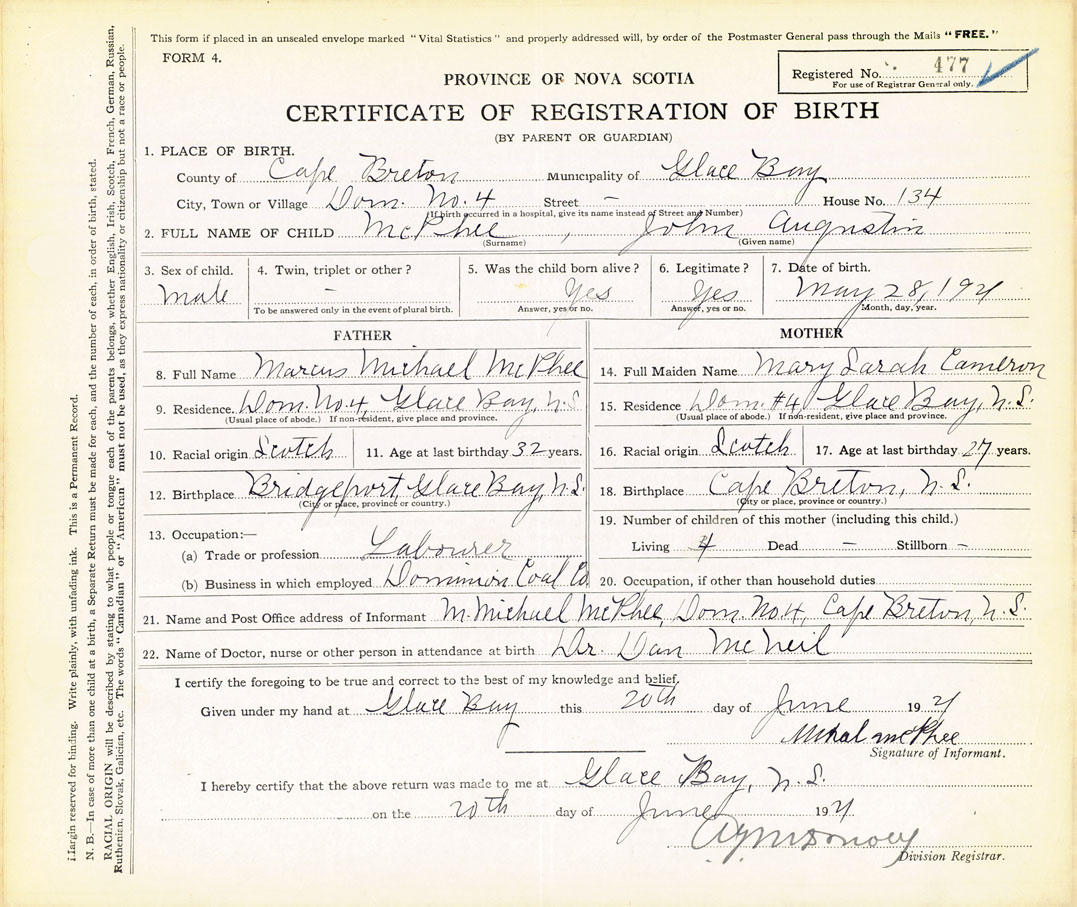 This form if placed in an unsealed envelope marked "Vital Statistics" and properly addressed will, by order of the Postmaster General pass through the Mails "FREE."
FORM 4.
Registered No. 477
For use of Registrar General only.
PROVINCE OF NOVA SCOTIA
CERTIFICATE OF REGISTRATION OF BIRTH
(BY PARENT OR GUARDIAN)
1. PLACE OF BIRTH.
County of Cape Breton Municipality of Glace Bay
City, Town or Village Dom. No. 4 Street – House No. 134
(If birth occurred in a hospital, give its name instead of Street and Number)
2. FULL NAME OF CHILD McPhee, John Augustin
(Surname) (Given name)
3. Sex of child. 4. Twin, triplet or other? 5. Was the child born alive? 6. Legitimate? 7. Date of birth.
Male – Yes Yes May 28, 1921
To be answered only in the event of plural birth. Answer, yes or no. Answer, yes or no. Month, day, year.
FATHER
8. Full Name Marcus Michael McPhee
9. Residence. Dom. No. 4, Glace Bay, N.S.
(Usual place of abode.) If non-resident, give place and province.
10. Racial origin Scotch 11. Age at last birthday 32 years.
12. Birthplace Bridgeport, Glace Bay, N.S.
(City or place, province or country.)
13. Occupation:—
(a) Trade or profession Labourer
(b) Business in which employed Dominion Coal Co
MOTHER
14. Full Maiden Name Mary Sarah Cameron
15. Residence Dom. #4, Glace Bay, N.S.
(Usual place of abode.) If non-resident, give place and province.
16. Racial origin Scotch 17. Age at last birthday 27 years.
18. Birthplace Cape Breton, N.S.
(City or place, province or country.)
19. Number of children of this mother (including this child.)
Living 4 Dead – Stillborn –
20. Occupation, if other than household duties
21. Name and Post Office address of Informant M. Michael McPhee, Dom. No. 4, Cape Breton, N.S.
22. Name of Doctor, nurse or other person in attendance at birth Dr. Dan McNeil
I certify the foregoing to be true and correct to the best of my knowledge and belief.
Given under my hand at Glace Bay this 20th day of June 1921
McPhee
Signature of Informant.
I hereby certify that the above return was made to me at Glace Bay, N.S.
on the 20th day of June 1921
Division Registrar.
Margin reserved for binding. Write plainly, with unfading ink. This is a Permanent Record.
N. B.—In case of more than one child at a birth, a Separate Return must be made for each, and the number of each, in order of birth, stated.
RACIAL ORIGIN will be described by stating to what people or tongue each of the parents belongs, whether English, Irish, Scotch, French, German, Russian,
Ruthenian, Slovak, Galician, etc. The words "Canadian" or "American" must not be used, as they express nationality or citizenship but not a race or people.